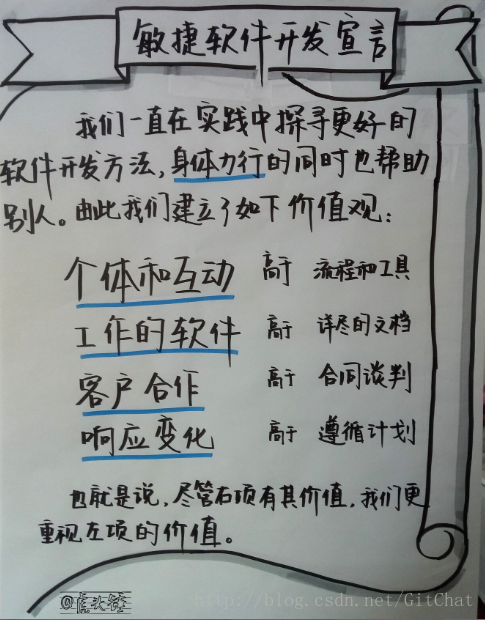 敏捷软件开发宣言
我们一直在实践中探寻更好的
软件开发方法,身体力行的同时也帮助
别人。由此我们建立了如下价值观:
个体和互动 高于 流程和工具
工作的软件 高于 详尽的文档
客户合作 高于 合同谈判
响应变化 高于 遵循计划
也就是说,尽管右项有其价值,我们更
重视左项的价值。
http://blog.csdn.net/GitChat